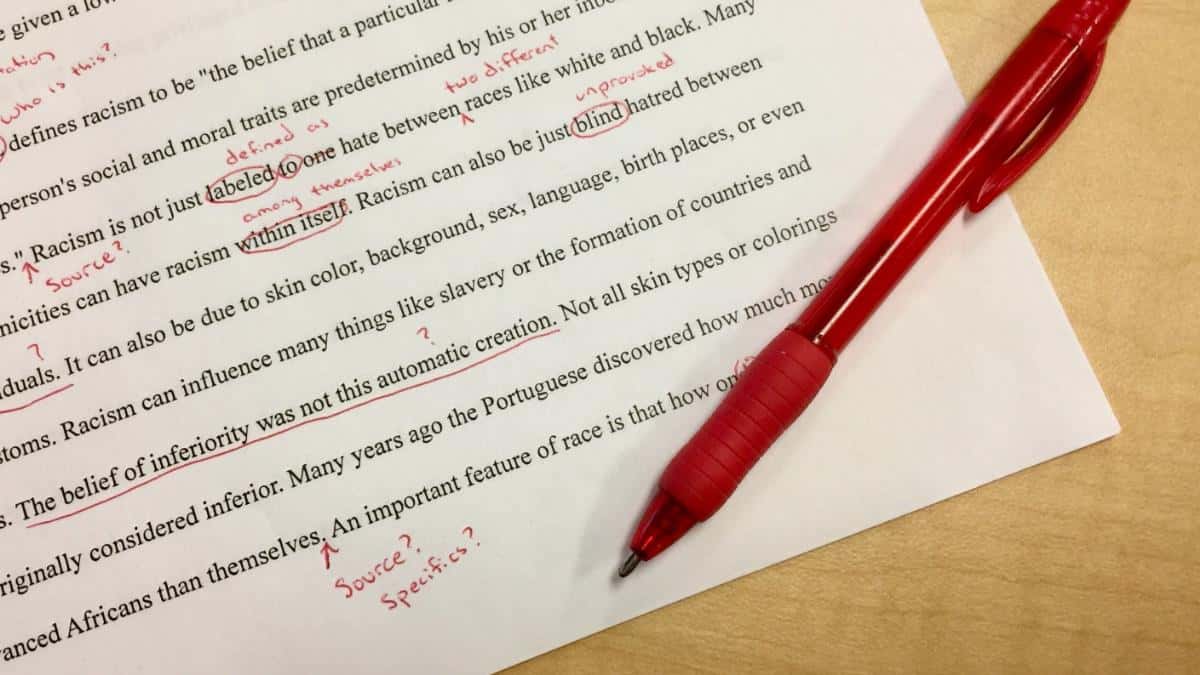 e given a low
tation
who is this?
defines racism to be "the belief that a particular
two different
unprovoked
person's social and moral traits are predetermined by his or her inbo
defined as
s." Racism is not just labeled to one hate between races like white and black. Many
Source?
among themselves
nicities can have racism within itself. Racism can also be just blind hatred between
?
duals. It can also be due to skin color, background, sex, language, birth places, or even
stoms. Racism can influence many things like slavery or the formation of countries and
?
s. The belief of inferiority was not this automatic creation. Not all skin types or colorings
riginally considered inferior. Many years ago the Portuguese discovered how much mo
vanced Africans than themselves. An important feature of race is that how on
Source?
Specifics?